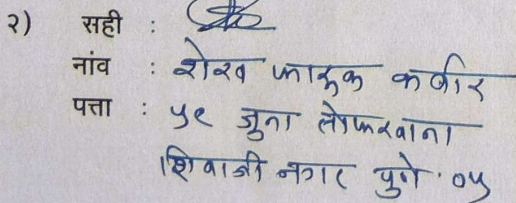 २) सही :
नांव : शेख फारुक कबीर
पत्ता : ५९ जुना तोफखाना
शिवाजी नगर पुणे. ०५